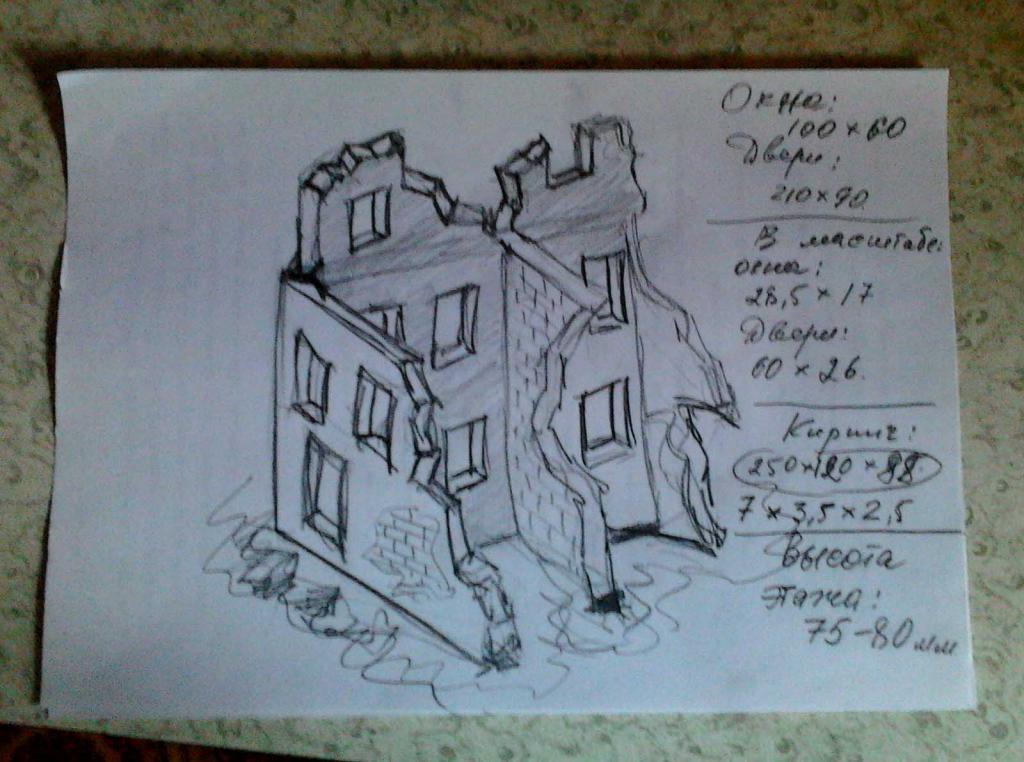 Окна:
100 × 60
Двери:
210×90
В масштабе:
окна:
28,5 × 17
Двери:
60 × 26.
Кирпич:
250×120×88
7 × 3,5 × 2,5
Высота
этажа:
75-80 мм